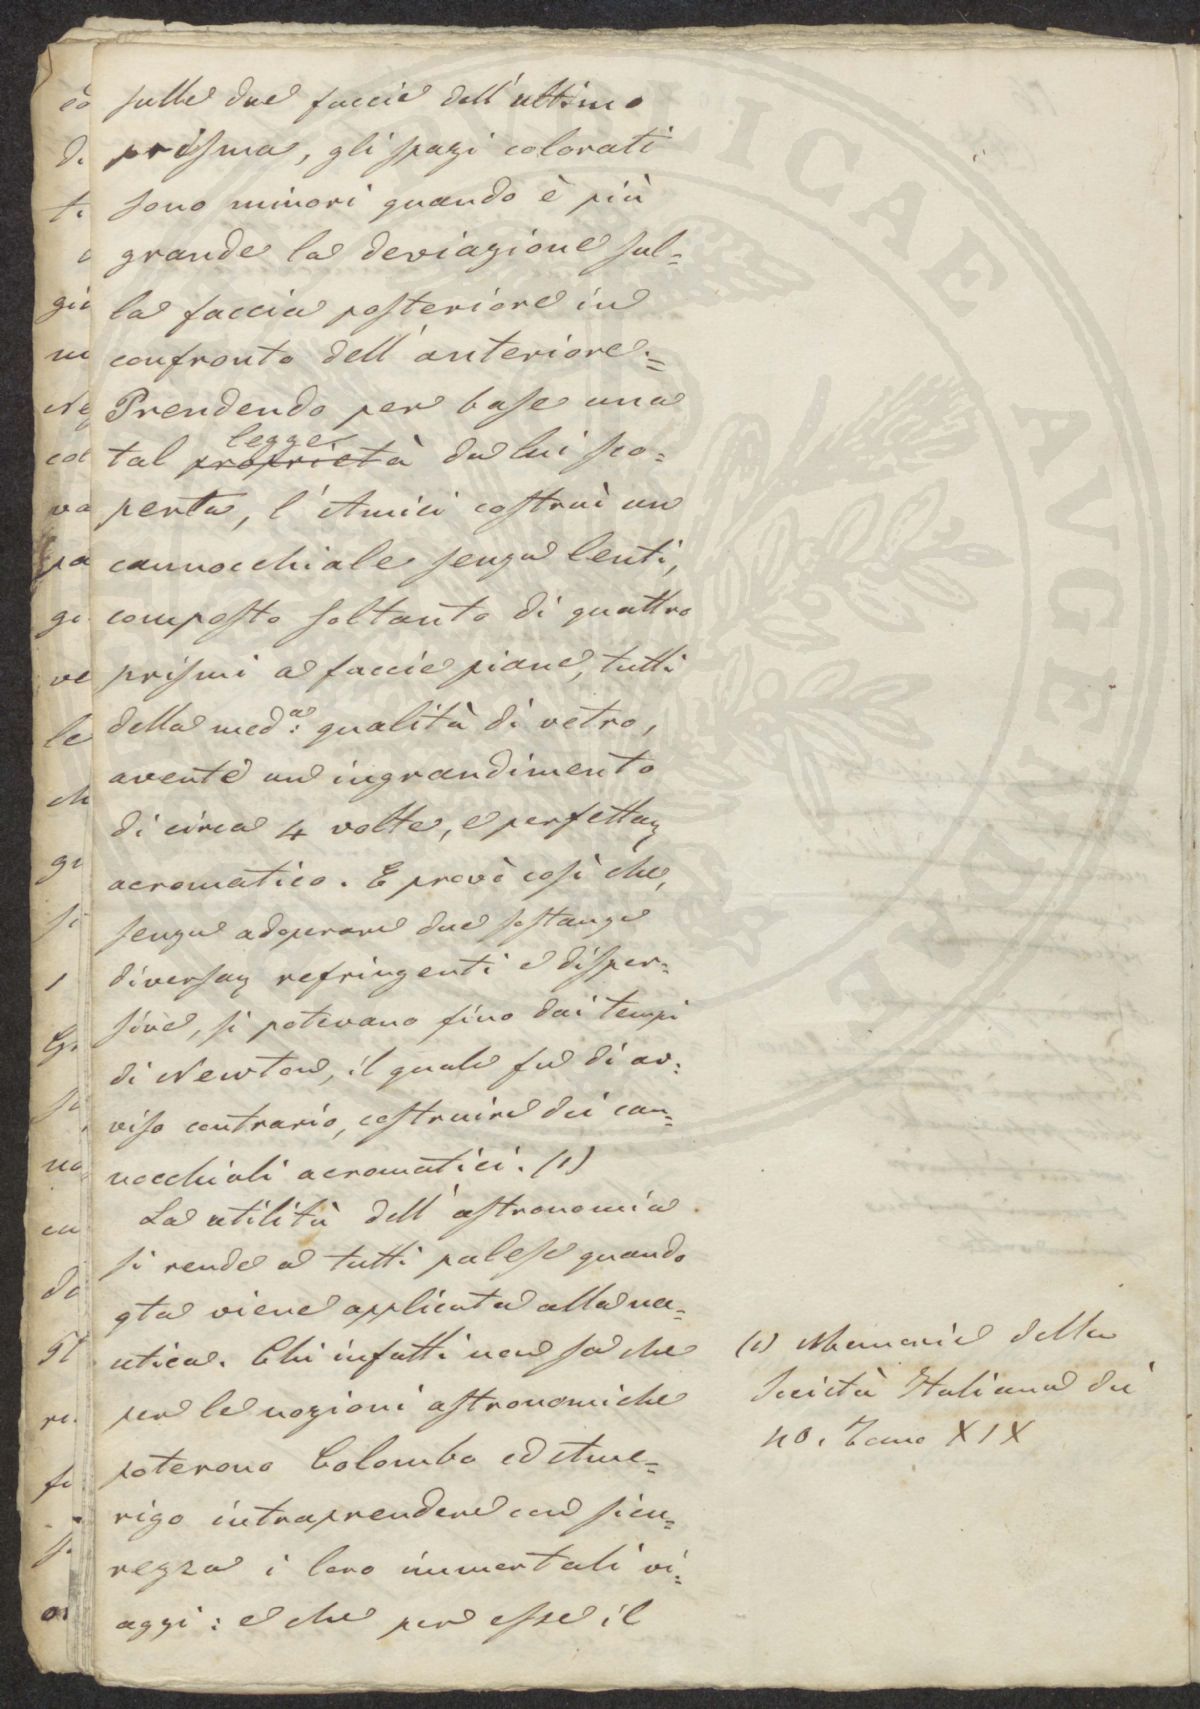 sulle due faccie dell'ultimo
prisma, gli spazi colorati
sono minori quando è più
grande la deviazione sul=
la faccia posteriore in
confronto dell'anteriore.=
Prendendo per base una
legge
tal proprietà da lui sco=
perta, l'Amici costruì un
cannocchiale senza lenti,
composto soltanto di quattro
prismi a faccie piane, tutti
della med:a qualità di vetro,
avente un ingrandimento
di circa 4 volte, e
acromatico. E provò così che,
senza adoperare due sostanze
refringenti e disper=
sive, si potevano fino dai tempi
di Newton, il quale fu di av=
viso contrario, costruire dei can=
nocchiali acromatici. (1)
La utilità dell'astronomia
si rende a tutti palese quando
qta viene applicata alla na=
utica. Chi infatti non sa che
per le nozioni astronomiche
poterono Colombo ed Ame=
rigo intraprendere con sicu=
rezza i loro immortali vi=
aggi: e che per esse il
(1) Memorie della
Società Italiana dei
40. Tomo XIX
PVBLICAE AVCTORITATE